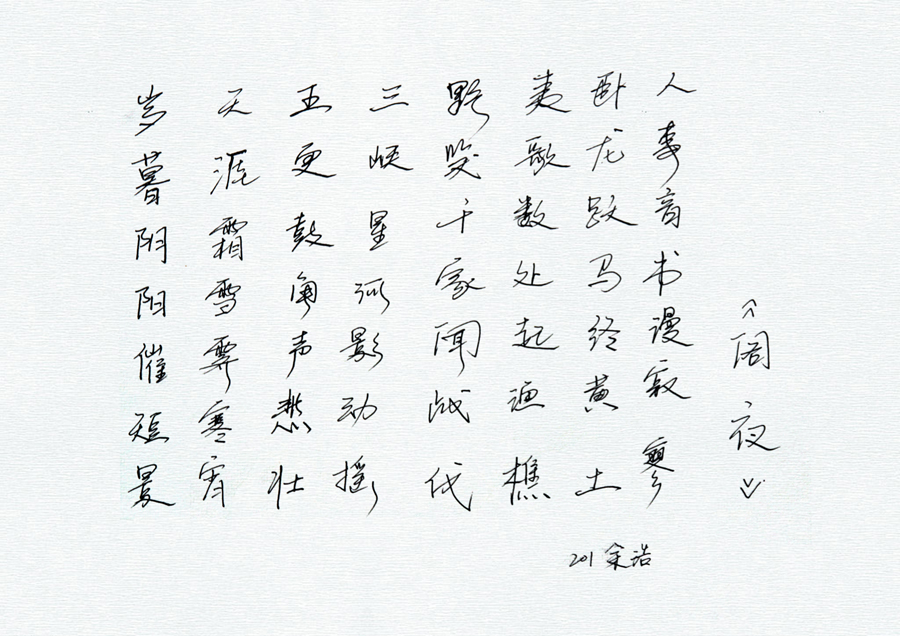 《阁夜》
岁暮阴阳催短景
天涯霜雪霁寒宵
五更鼓角声悲壮
三峡星河影动摇
野哭千家闻战伐
夷歌数处起渔樵
卧龙跃马终黄土
人事音书漫寂寥
201 余浩